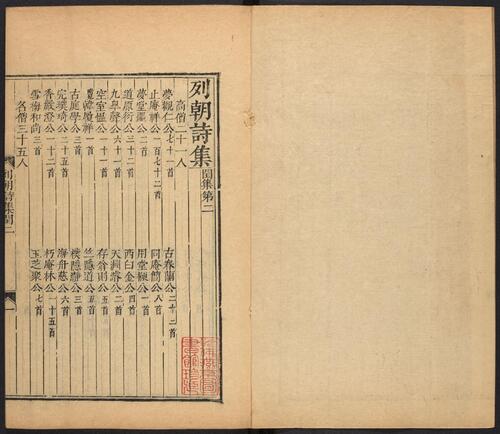 列朝詩集 閏集第二
高僧二十一人
夢觀仁公七十一首
古春蘭公二十二首
止庵祥公一百七十二首
同庵簡公八首
夢堂噩公二首
用堂楩公一首
道原衍公三十二首
西白金公四首
九皋聲公六十一首
天淵濬公二首
空室慍公一十一首
存翁則公五首
竺隱道公五首
古庭學公三首
樸隱瀞公三首
完璞琦公二十五首
海舟慈公六首
香嚴澄公一十二首
朽庵林公一十五首
雪梅和尚三首
玉芝聚公七首
名僧三十五人
列朝詩集閏二
一